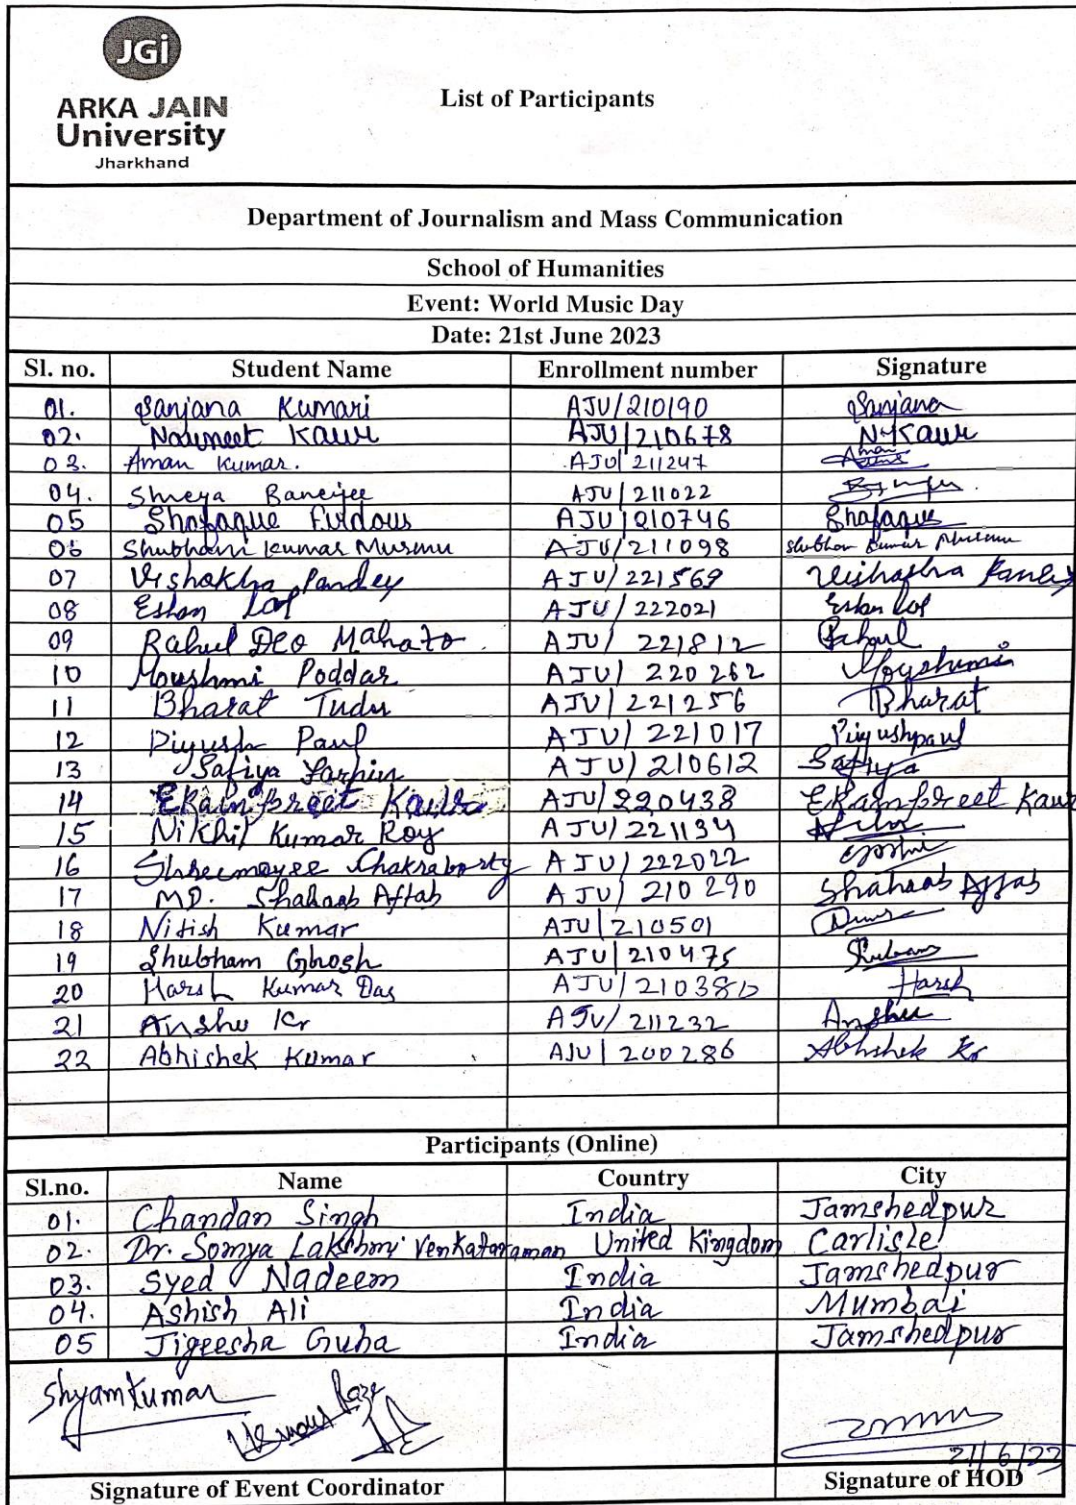 JGi
ARKA JAIN
University
Jharkhand
List of Participants
Department of Journalism and Mass Communication
School of Humanities
Event: World Music Day
Date: 21st June 2023
Sl. no. Student Name Enrollment number Signature
01. Sanjana Kumari AJU/210190 Sanjana
02. Navneet Kaur AJU/210678 N.Kaur
03. Aman Kumar. AJU/211247 Aman
04. Shreya Banerjee AJU/211022
05 Shafaque Firdous AJU/210746 Shafaque
06 Shubham Kumar Murmu AJU/211098 Shubham Kumar Murmu
07 Vishakha Pandey AJU/221569 Vishakha Pandey
08 Eshan Lal AJU/222021 Eshan Lal
09 Rahul Deo Mahato AJU/221812 Rahul
10 Moushmi Poddar AJU/220262 Moushmi
11 Bharat Tudu AJU/221256 Bharat
12 Piyush Paul AJU/221017 Piyushpaul
13 Safiya AJU/210612 Safiya
14 Ekampreet Kaur AJU/220438 Ekampreet Kaur
15 Nikhil Kumar Roy AJU/221134
16 Shreemoyee Chakraborty AJU/222022
17 MD. Shahaab Aftab AJU/210290 Shahaab Aftab
18 Nitish Kumar AJU/210501
19 Shubham Ghosh AJU/210475 Shubham
20 Harsh Kumar Das AJU/210380 Harsh
21 Anshu Kr AJU/211232 Anshu
22 Abhishek Kumar AJU/200286 Abhishek Kr
Participants (Online)
Sl.no. Name Country City
01. Chandan Singh India Jamshedpur
02. Dr. Somya Lakshmi Venkataraman United Kingdom Carlisle
03. Syed Nadeem India Jamshedpur
04. Ashish Ali India Mumbai
05 Jigeesha Guha India Jamshedpur
Shyam Kumar
21/6/23
Signature of Event Coordinator Signature of HOD